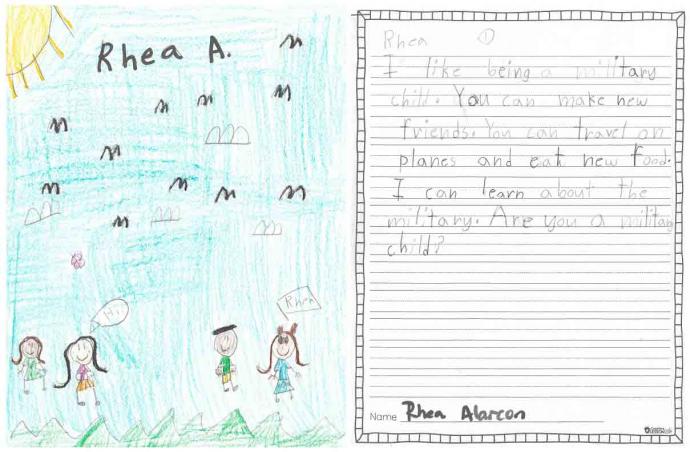 Rhea A.
Hi
Rhea
Rhea 1
I like being a military
child. You can make new
friends. You can travel on
planes and eat new food.
I can learn about the
military. Are you a military
child?
Name Rhea Alarcon